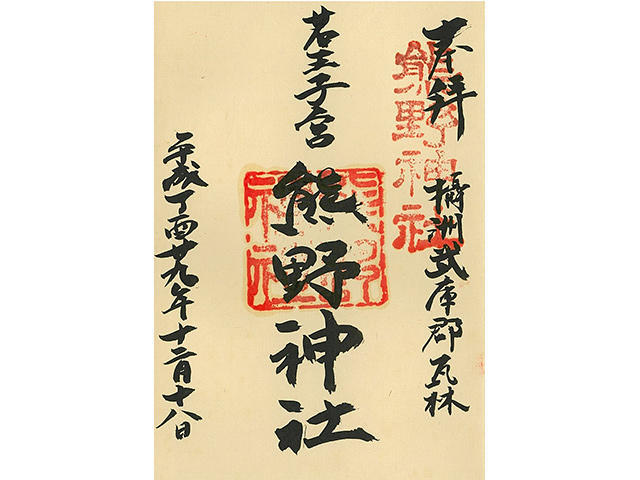 奉拝
攝洲武庫郡瓦林
若王子宮
熊野神社
平成丁酉廿九年十二月十八日
熊野神社
熊野神社